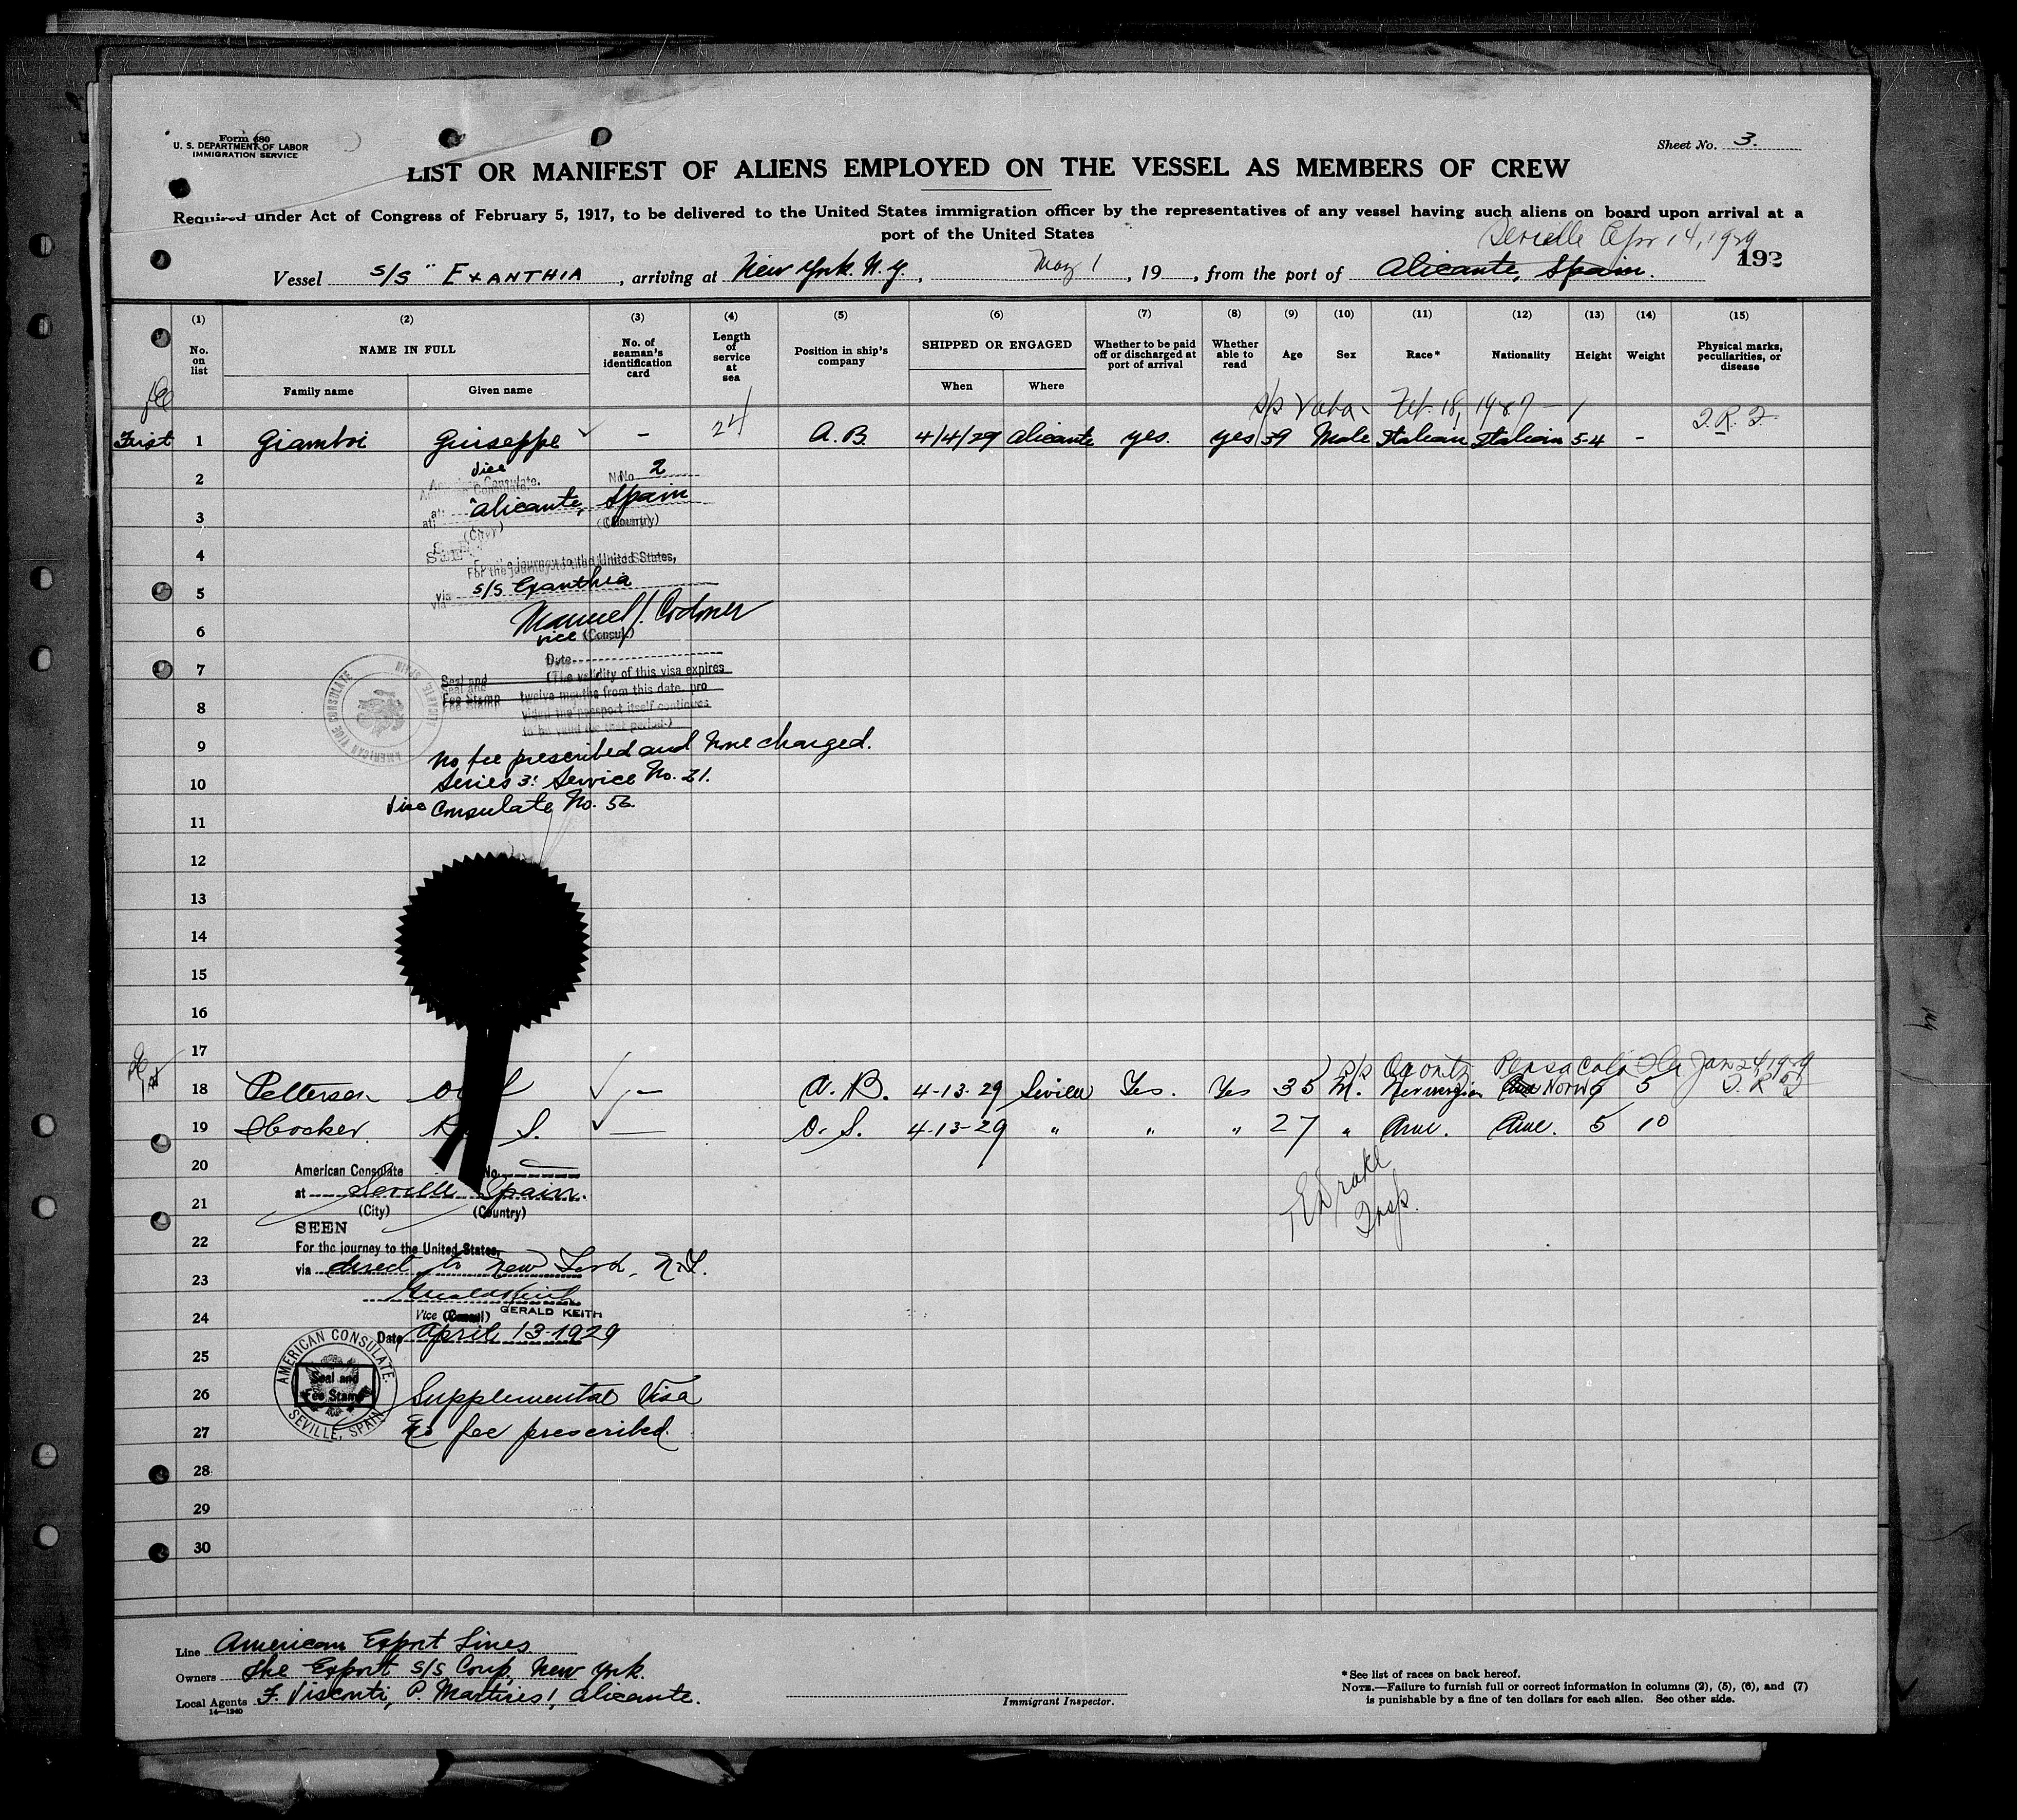 Form 680
U. S. DEPARTMENT OF LABOR
IMMIGRATION SERVICE
Sheet No. 3.
LIST OR MANIFEST OF ALIENS EMPLOYED ON THE VESSEL AS MEMBERS OF CREW
Required under Act of Congress of February 5, 1917, to be delivered to the United States immigration officer by the representatives of any vessel having such aliens on board upon arrival at a
port of the United States
Seville Apr 14, 1929
192
Vessel S/S "EXANTHIA, arriving at New York. N.Y., May 1, 19, from the port of Alicante, Spain.
(1) (2) (3) (4) (5) (6) (7) (8) (9) (10) (11) (12) (13) (14) (15)
No. on list NAME IN FULL No. of seaman's identification card Length of service at sea Position in ship's company SHIPPED OR ENGAGED Whether to be paid off or discharged at port of arrival Whether able to read Age Sex Race* Nationality Height Weight Physical marks, peculiarities, or disease
Family name Given name When Where
S/S Feb. 18, 1929
First 1 Giamboi Giuseppe - 24 A.B. 4/4/29 Alicante yes. yes 39 Male Italian Italian 5-4 -
2 Vice
American Consulate. No 2
3 at: Alicante, Spain
(City) (Country)
4 SEEN
For the journey to the United States,
5 via S/S Exanthia
6 Manuel J. Codoner
vice (Consul)
Date
7 Seal and (The validity of this visa expires
Fee Stamp twelve months from this date, pro
8 vided the passport itself continues
to be valid for that period.)
AMERICAN VICE CONSULATE ALICANTE, SPAIN
9 No fee prescribed and None charged.
10 Series 3: Service No. 21.
Vice Consulate No. 56
11
12
13
14
15
16
17
S/S Pensacola Fla Jan 24, 1929
18 Petterson A. B. 4-13-29 Sevilla Yes. Yes 35 M. Norwegian Norw 5 5
19 Hooker. S. O. S. 4-13-29 " " " 27 " Ame. Ame. 5 10
20 American Consulate No.
21 at Seville Spain.
(City) (Country)
SEEN
22 For the journey to the United States,
via direct to New York, N.Y.
23 Gerald Keith
24 Vice (Consul) GERALD KEITH
Date April 13-1929
TEDrake
Insp.
25
AMERICAN CONSULATE. SEVILLE, SPAIN
Seal and
Fee Stamp
26 Supplemental Visa
27 No fee prescribed.
28
29
30
Line American Export Lines
Owners The Export S/S Corp, New York.
Local Agents F. Visconti, P. Martires 1, Alicante.
14—1240
Immigrant Inspector.
*See list of races on back hereof.
NOTE.—Failure to furnish full or correct information in columns (2), (5), (6), and (7)
is punishable by a fine of ten dollars for each alien. See other side.